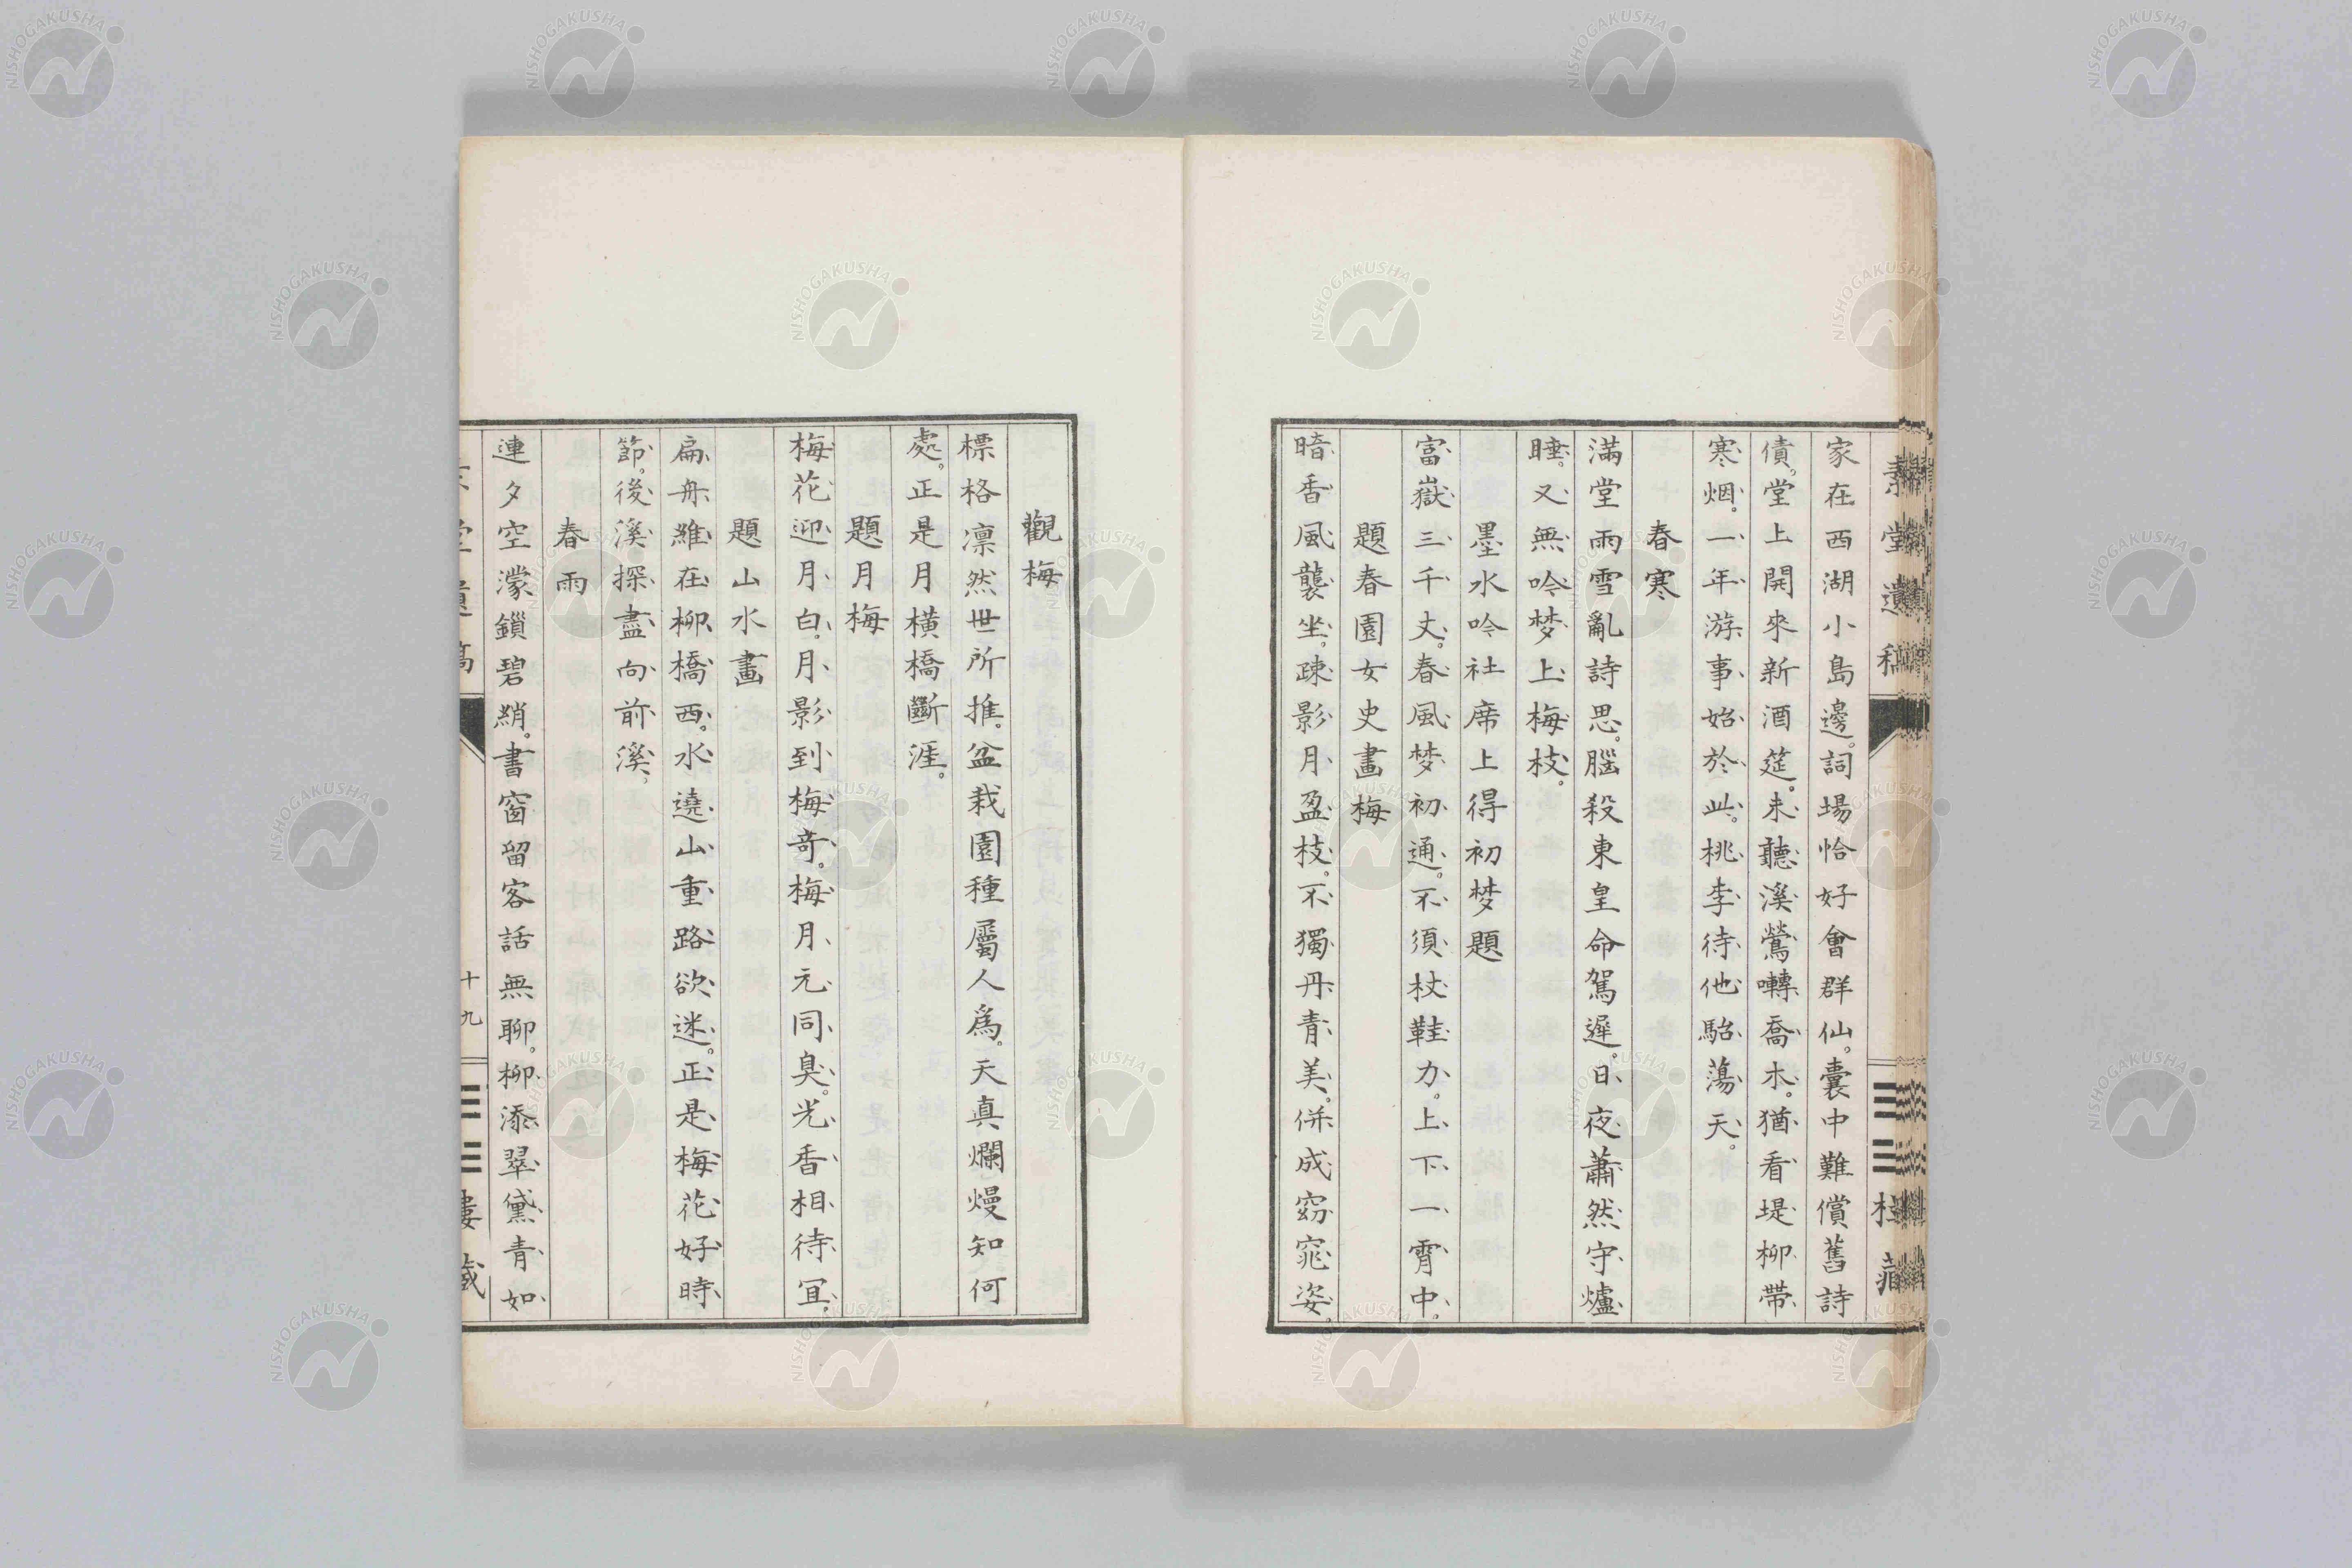 家在西湖小島邊。詞場恰好會群仙。囊中難償舊詩
債。堂上開來新酒筵。未聽溪鶯囀喬木。猶看堤柳帶
寒烟。一年游事始於此。桃李待他駘蕩天。
春寒
滿堂雨雪亂詩思。腦殺東皇命駕遲。日夜蕭然守爐
睡。又無吟梦上梅枝。
墨水吟社席上得初梦題
富嶽三千丈。春風梦初通。不須杖鞋力。上下一霄中。
題春園女史畫梅
暗香風襲坐。疎影月盈枝。不獨丹青美。併成窈窕姿。
觀梅
標格凛然世所推。盆栽園種屬人爲。天真爛熳知何
處。正是月橫橋斷涯。
題月梅
梅花迎月白。月影到梅奇。梅月元同臭。光香相待宜。
題山水畫
扁舟維在柳橋西。水遶山重路欲迷。正是梅花好時
節。後溪探盡向前溪。
春雨
連夕空濛鎖碧綃。書窗留客話無聊。柳添翠黛青如
十九
NISHOGAKUSHA